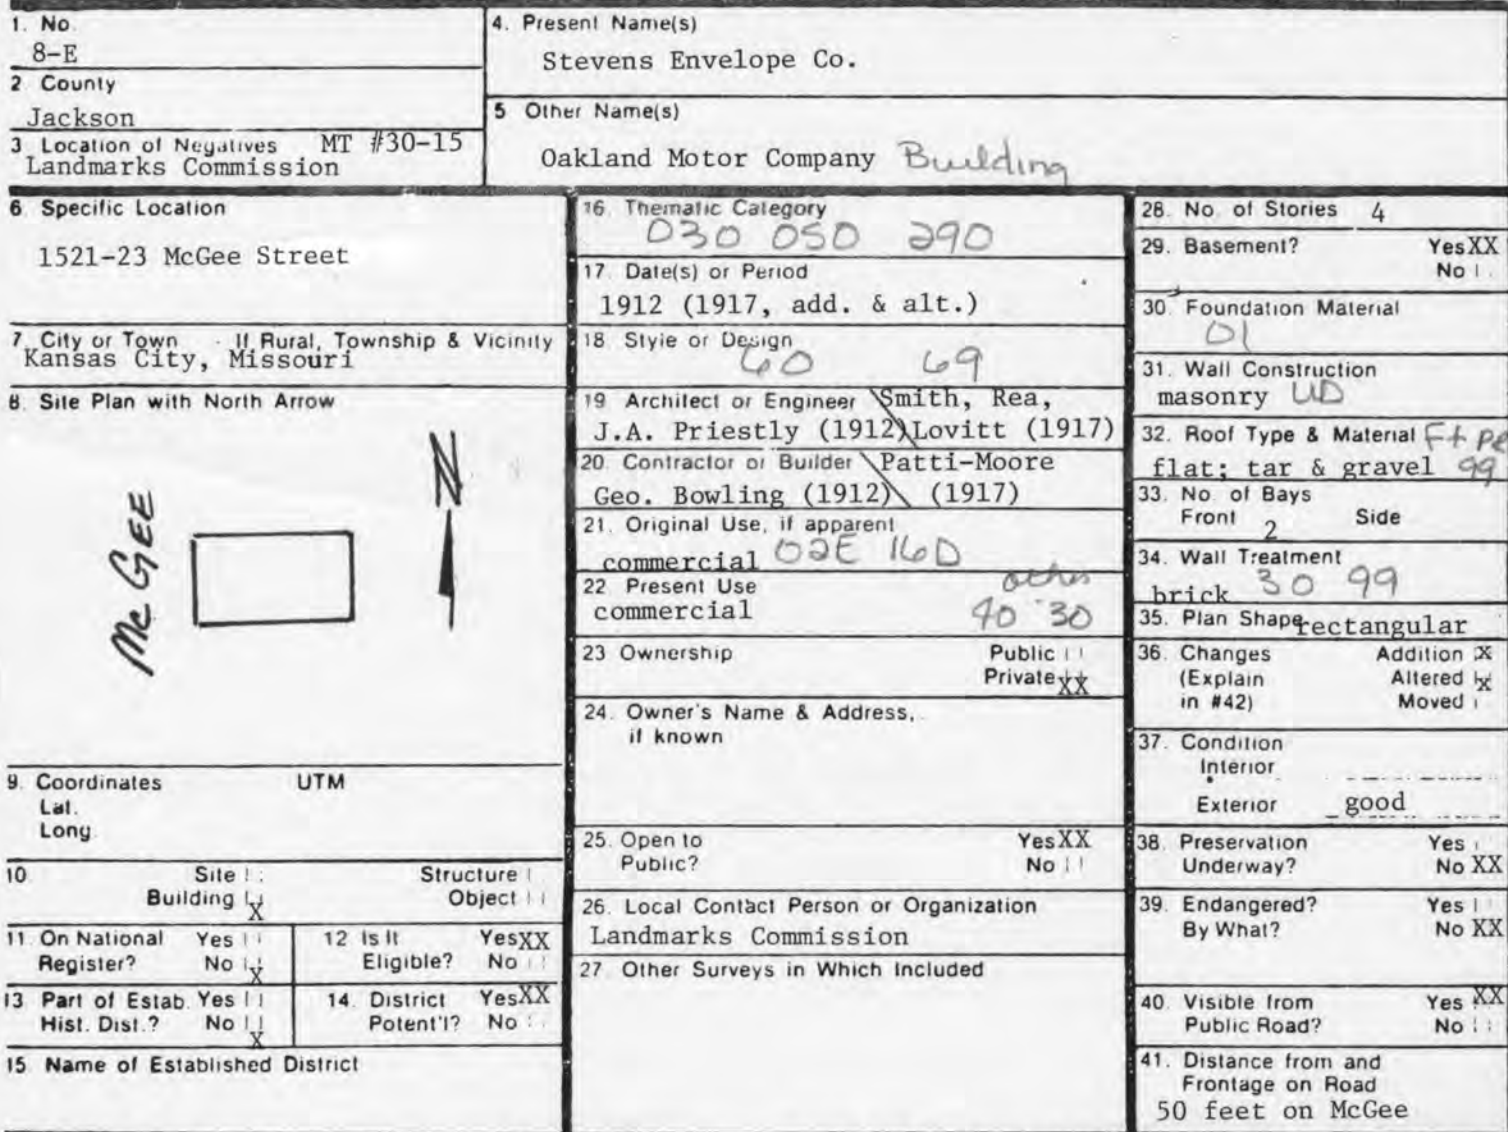 1. No.
8-E
2 County
Jackson
3 Location of Negatives MT #30-15
Landmarks Commission
4. Present Name(s)
Stevens Envelope Co.
5 Other Name(s)
Oakland Motor Company Building
6. Specific Location
1521-23 McGee Street
7 City or Town If Rural, Township & Vicinity
Kansas City, Missouri
8. Site Plan with North Arrow
McGEE
N
9. Coordinates UTM
Lat.
Long
10. Site Structure
Building X Object
11. On National Yes
Register? No X
12 Is It YesXX
Eligible? No
13 Part of Estab. Yes
Hist. Dist.? No X
14. District YesXX
Potent'l? No
15 Name of Established District
16. Thematic Category
030 050 290
17. Date(s) or Period
1912 (1917, add. & alt.)
18 Style or Design
60 69
19 Architect or Engineer Smith, Rea,
J.A. Priestly (1912) Lovitt (1917)
20. Contractor or Builder Patti-Moore
Geo. Bowling (1912) (1917)
21. Original Use, if apparent
commercial 02E 16D
22 Present Use other
commercial 40 30
23 Ownership Public
Private XX
24. Owner's Name & Address,
if known
25. Open to YesXX
Public? No
26. Local Contact Person or Organization
Landmarks Commission
27. Other Surveys in Which Included
28. No. of Stories 4
29. Basement? YesXX
No
30 Foundation Material
01
31. Wall Construction
masonry UD
32. Roof Type & Material Ft
flat; tar & gravel 99
33. No. of Bays
Front 2 Side
34. Wall Treatment
brick 30 99
35. Plan Shape rectangular
36. Changes Addition X
(Explain Altered X
in #42) Moved
37. Condition
Interior
Exterior good
38. Preservation Yes
Underway? No XX
39. Endangered? Yes
By What? No XX
40. Visible from Yes XX
Public Road? No
41. Distance from and
Frontage on Road
50 feet on McGee